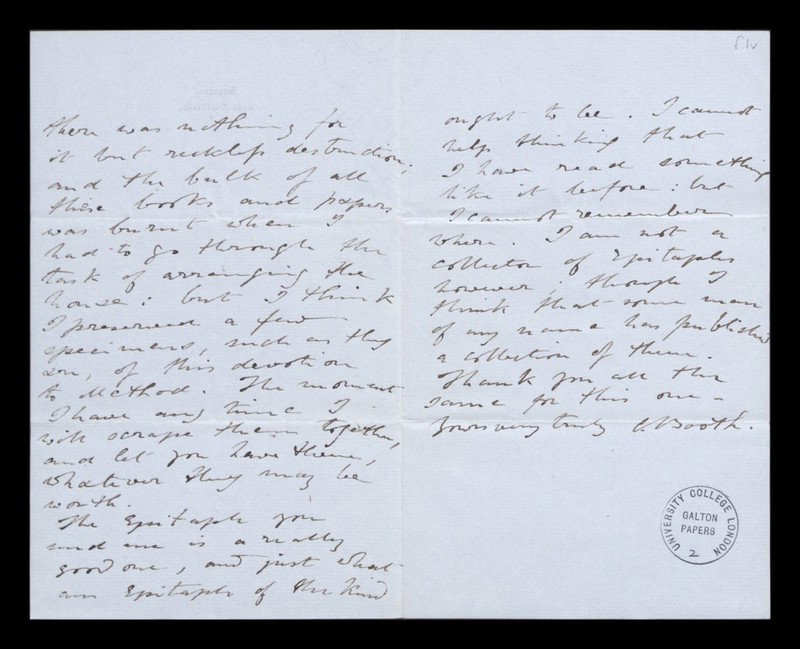 there was nothing for
it but reckless destruction;
and the bulk of all
these books and papers
was burnt when I
had to go through the
task of arranging the
house: but I think
I preserved a few
specimens, such as they
are, of this devotion
to Method. The moment
I have any time I
will scrape them together,
and let you have them,
whatever they may be
worth.
The Epitaph you
send me is a really
good one, and just what
an Epitaph of the kind
ought to be. I cannot
help thinking that
I have read something
like it before: but
I cannot remember
where. I am not a
collector of Epitaphs
however; though I
think that some man
of my name has published
a collection of them.
Thank you all the
same for this one -
Yours very truly C Booth.
UNIVERSITY COLLEGE LONDON
GALTON
PAPERS
2